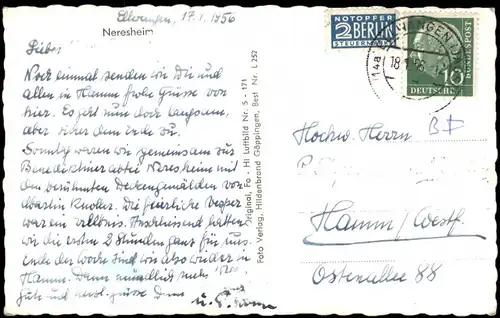 Ellwangen, 17.1.1956
Neresheim
Lieber
Noch einmal senden wir Dir und
allen in Hamm frohe Grüsse von
hier. Es geht nun doch langsam,
aber sicher dem Ende zu.
Sonntag waren wir gemeinsam zur
Benediktinerabtei Neresheim mit
den berühmten Deckengemälden von
Martin Knoller. Die feierliche Vesper
war ein Erlebnis. Anschliessend hatten
wir die ersten 2 Stunden ganz für uns.
Ende der Woche sind wir also wieder in
Hamm. Dann mündlich mehr
Gute und herzl. Grüsse Dein
u.
Original, Fo - Hi Luftbild Nr. S - 171
Foto Verlag, Hildenbrand Göppingen, Best Nr. L 252
NOTOPFER
2 BERLIN
STEUERMARKE
14a
18.1.56
10
DEUTSCHE
BUNDESPOST
Hochw. Herrn
Hamm/Westf.
Ostenallee 88